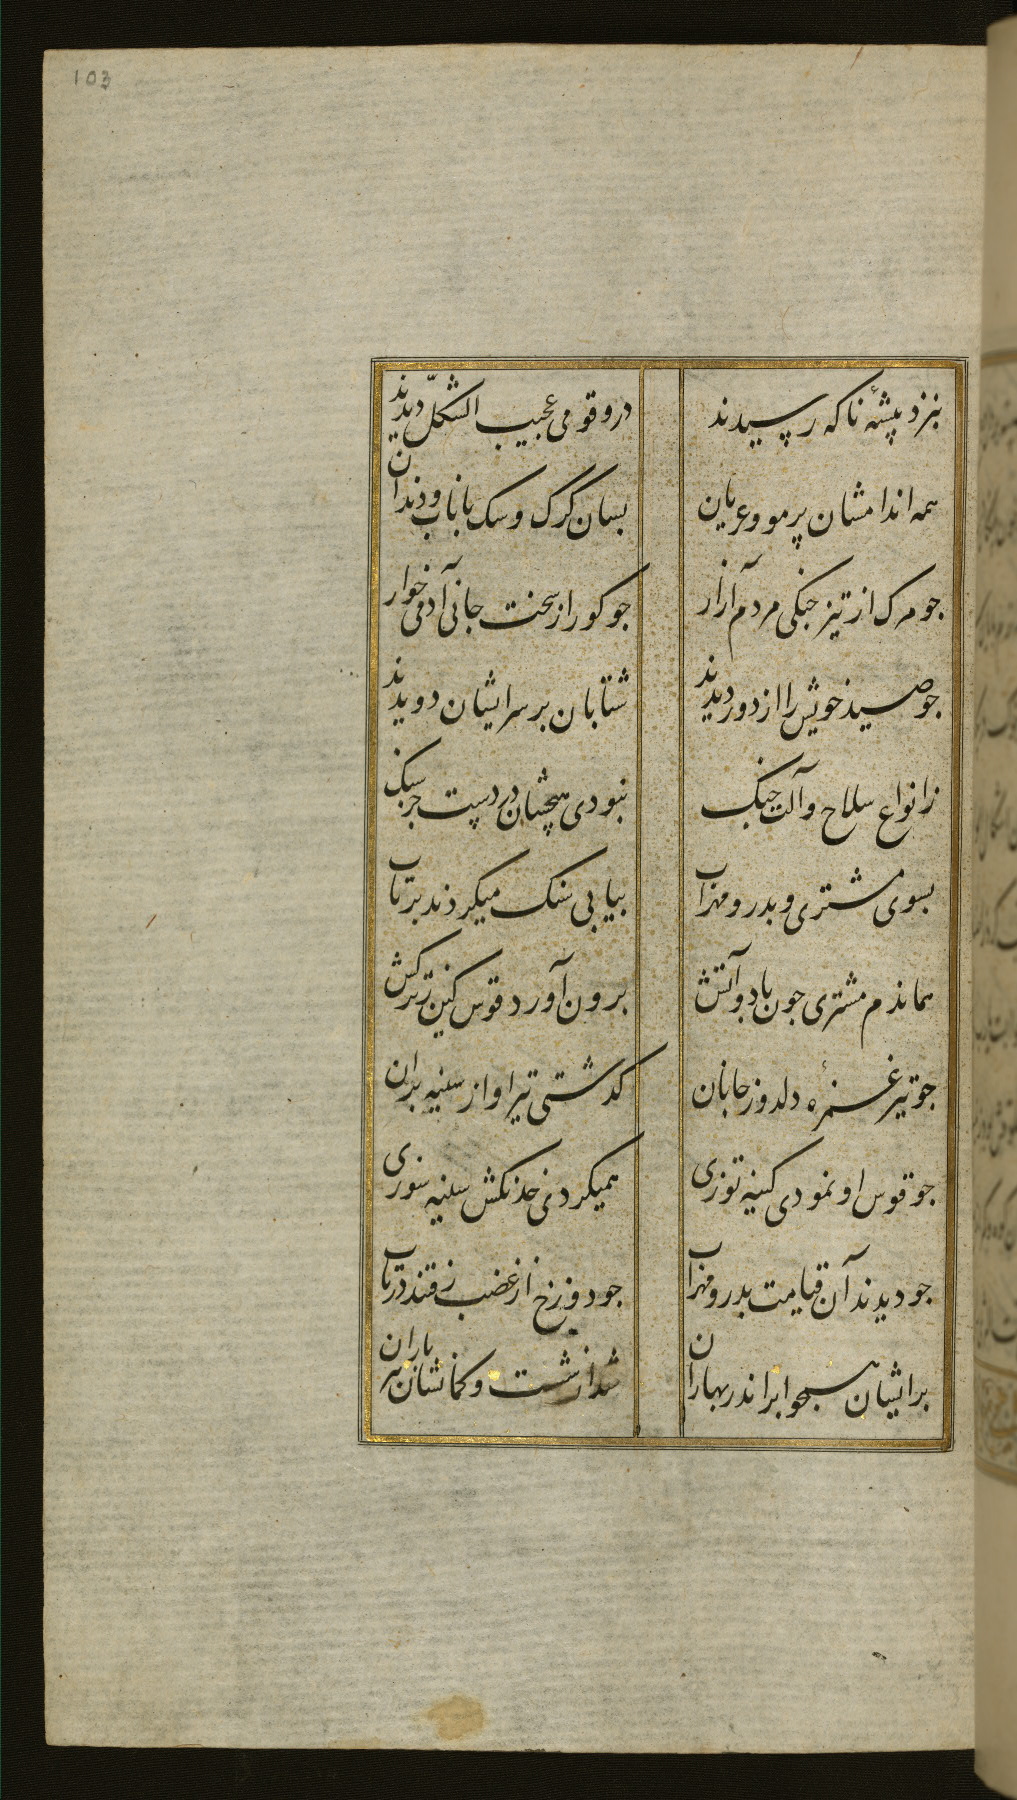 103
بنزد پیشهٔ ناکه رسیدند
درو قومی عجیب الشکل دیدند
همه اندامشان پرمو و عریان
بسان کرک و سک با ناب و دندان
جو مرک از تیز جنکی مردم آزار
جو کور از سخت جانی آدمی خوار
جو صید خویش را از دور دیدند
شتابان بر سر ایشان دویدند
ز انواع سلاح و آلت جنک
نبودی هیچشان در دست جز سنک
بسوی مشتری و بدر و مهراب
بیابی سنک میکردند برتاب
هماندم مشتری جون باد و آتش
برون آورد قوس کین ز ترکش
جو تیر غمزهٔ دلدوز جانان
کذشتی تیر او از سینه بران
جو قوس او نمودی کینه توزی
همیکردی خدنکش سینه سوزی
جو دیدند آن قیامت بدر و مهراب
جو دوزخ از غضب رفتند در تاب
بر ایشان همجو ابر اندر بهاران
شد از شست و کمانشان تیر باران